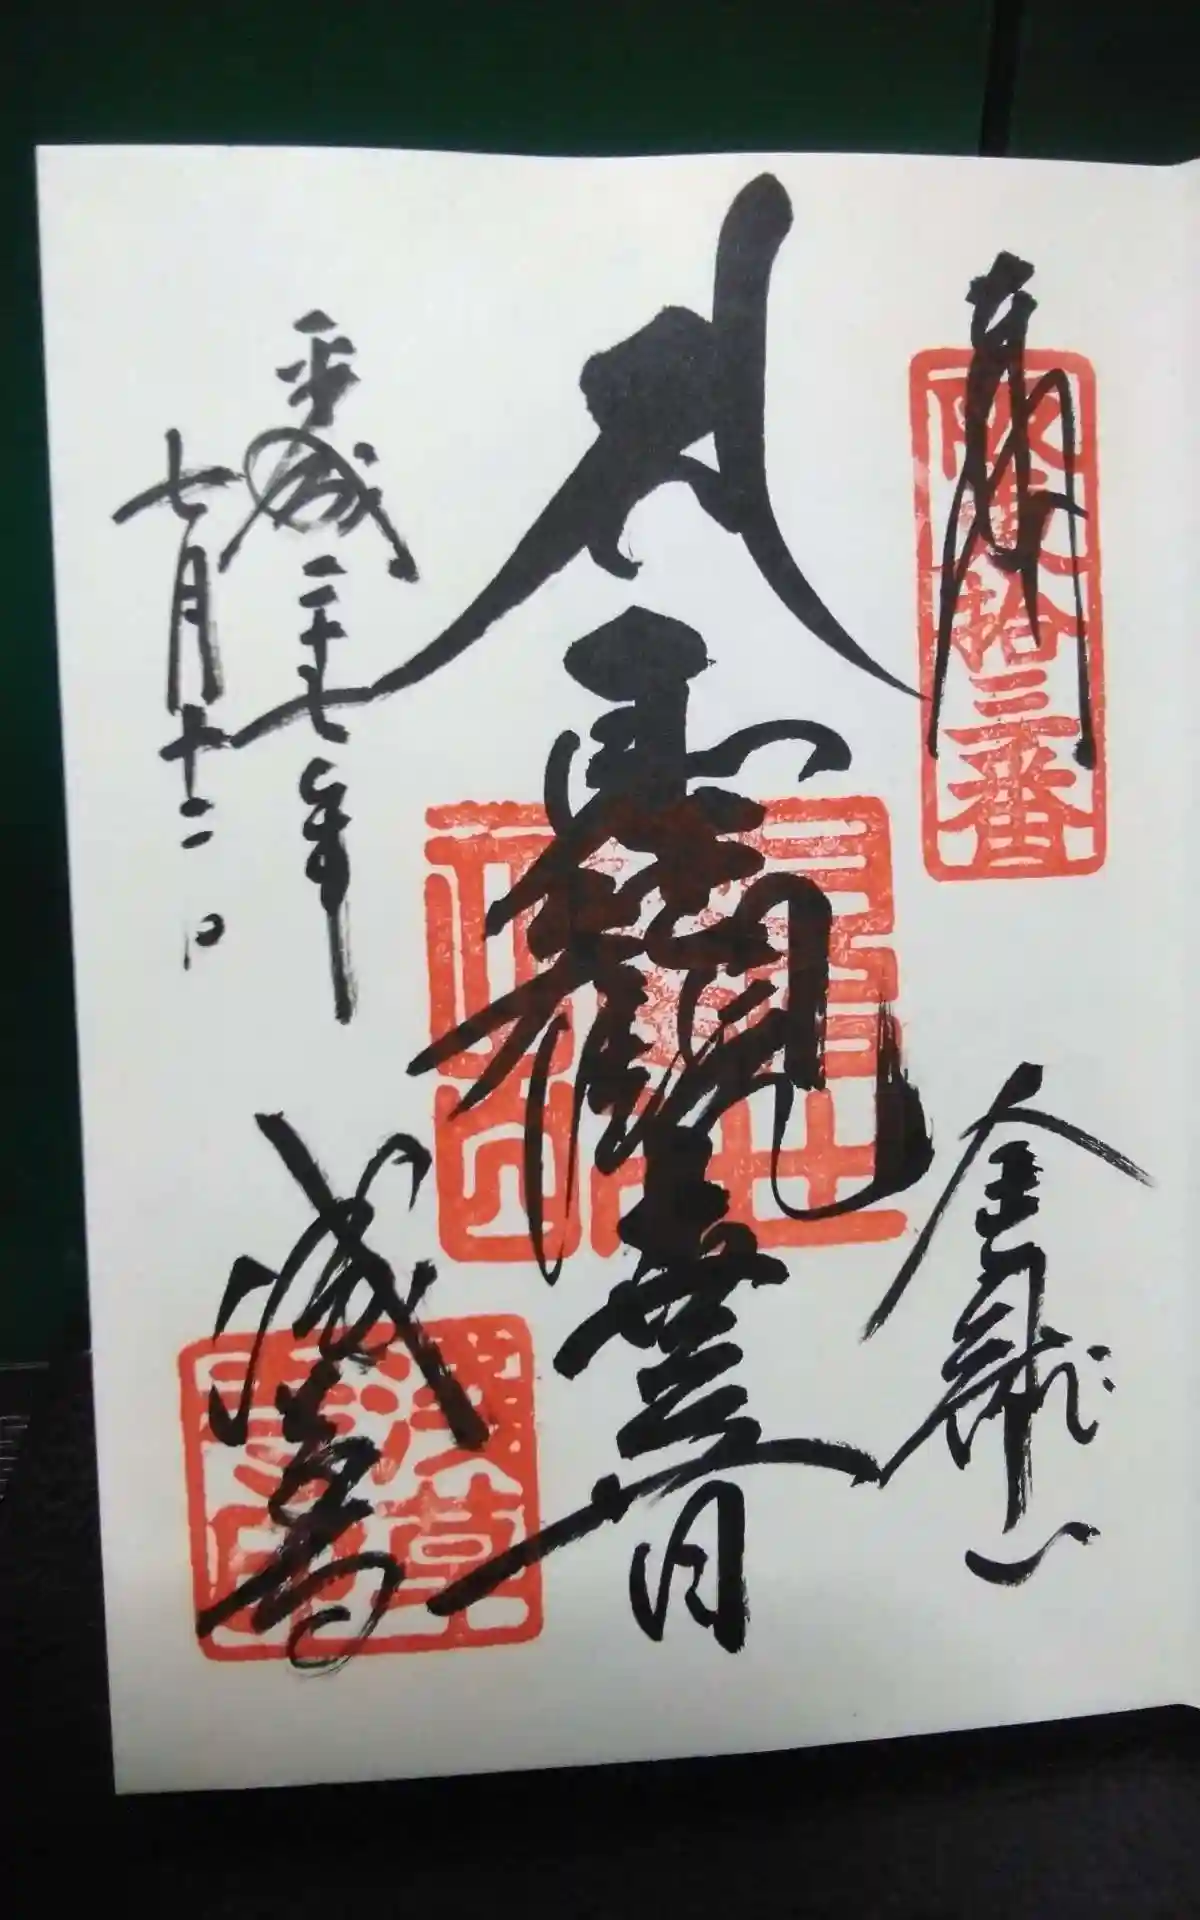 奉拝
阪東拾三番
金龍山
聖観世音
平成二十七年
七月十二日
浅草寺
淺草寺印